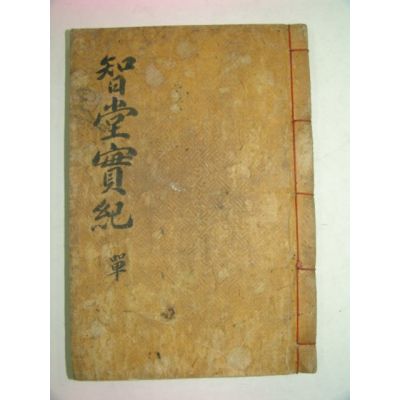 智堂實紀 單